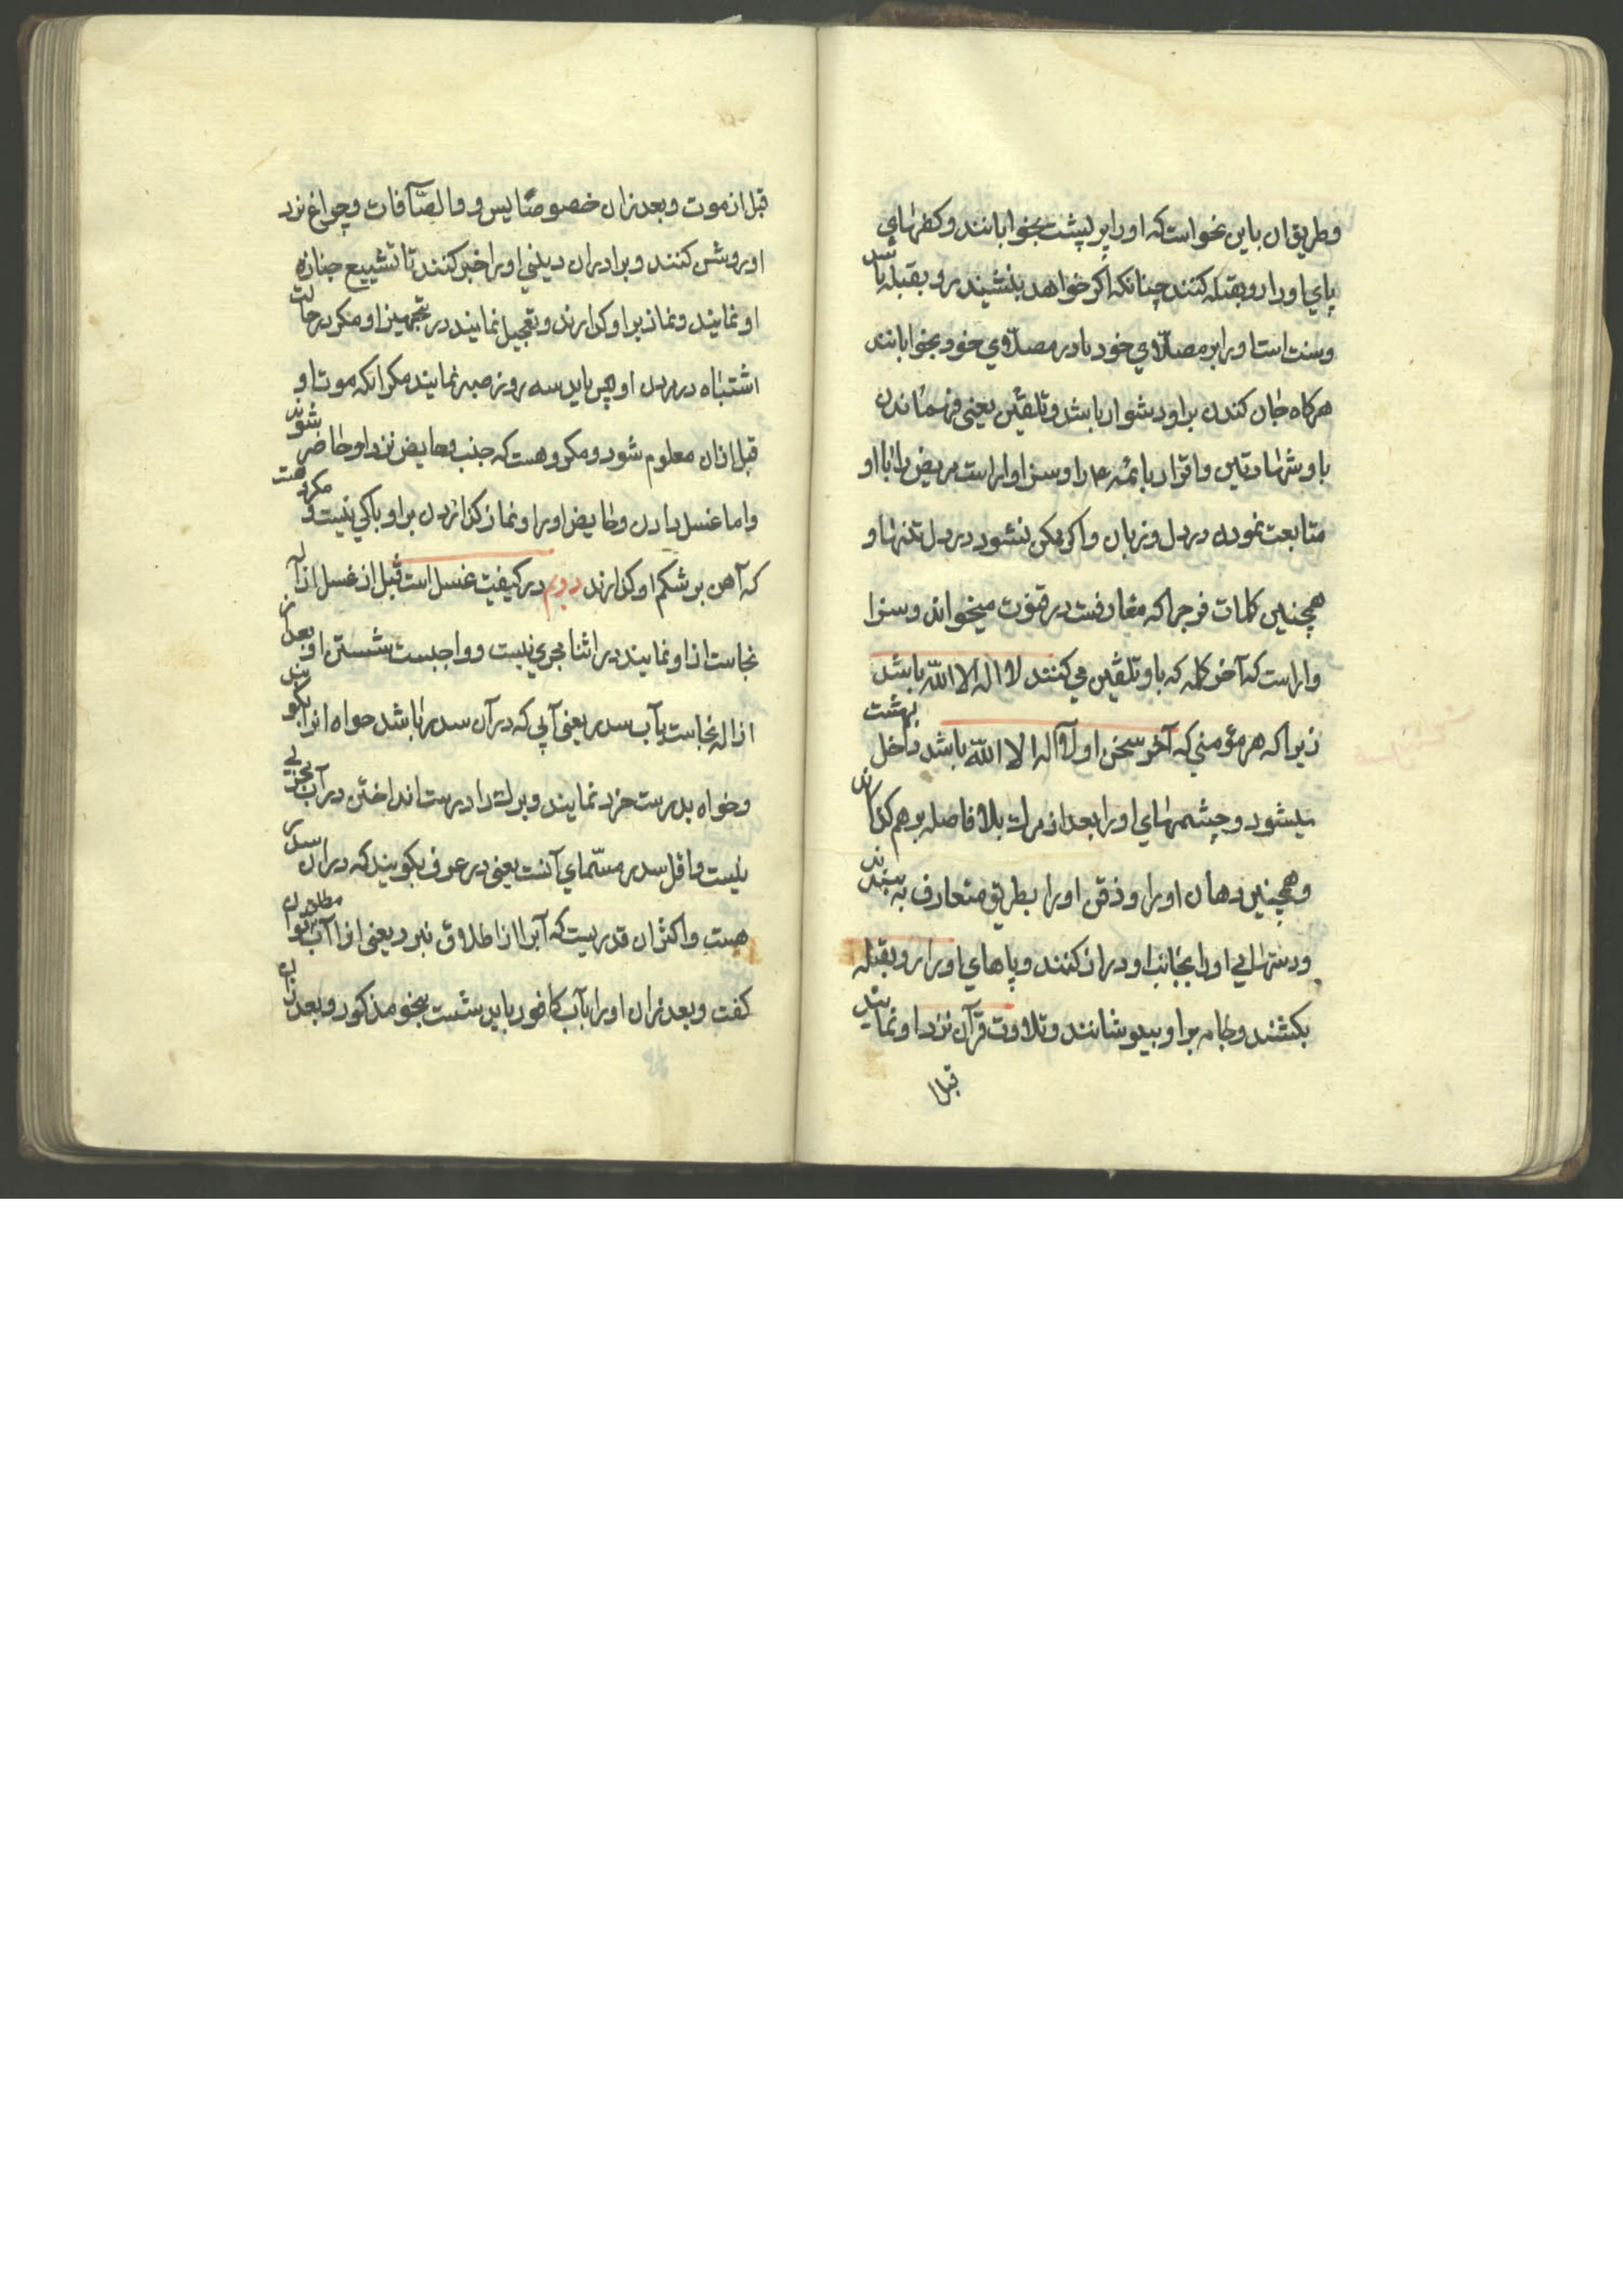 وطریق ان باین نحو است که اورا بر پشت بخوابانند وکفهای
پای اورا رو بقبله کنند چنانکه اکر خواهد بنشیند رو بقبله باشد
وسنت است اورا بر مصلّای خود یا در مصلّای خود بخوابانند
هرکاه جان کندن بر او دشوار باشد وتلقین یعنی فهماندن
باو شهادتین واقرار بائمه ع را وسزاوار است مریض را با او
متابعت نموده در دل وزبان واکر ممکن نشود در دل تنها و
همچنین کلمات فرج را که متعارفست در قنوت میخوانند وسزا
وار است که آخر کلمه که باو تلقین می کنند لا اله الا الله باشد
زیرا که هر مؤمنی که آخر سخن او لا اله الا الله باشد داخل بهشت
میشود وچشمهای اورا بعد از مرك بلا فاصله بر هم کذارند
وهمچنین دهان اورا وذقن اورا بطریق متعارف به بندند
ودستهای اورا بجانب او دراز کنند وپاهای اورا رو بقبله
بکشند وجامه بر او بپوشانند وتلاوت قرآن نزد او نمایند
قبل از
قبل از موت وبعد از ان خصوصًا یس ووالصّآفات وچراغ نزد
او روشن کنند وبرادران دینی اورا خبر کنند تا تشییع جنازه
او نمایند ونماز بر او کذارند وتعجیل نمایند در تجهیز او مکر در حالت
اشتباه در مردن او پس باید سه روز صبر نمایند مکر انکه موت او
قبل از ان معلوم شود ومکروهست که جنب وحایض نزد او حاضر شوند
واما غسل دادن وحایض اورا ونماز کذاردن بر او باکی نیست ومکروهست
که آهن بر شکم او کذارند دویم در کیفیت غسل است قبل از غسل ازاله
نجاست از او نمایند در اثنا مجزی نیست وواجبست شستن او بعد از
ازاله نجاست بآب سدر یعنی آبی که در آن سدر باشد خواه انرا بکوبند
وخواه بدست خرد نمایند وبرك را درست انداختن در آب مجزی
نیست واقل سدر مسمّای آنست یعنی در عرف بکویند که در ان سدر
هست واکثر ان قدریست که آبرا از اطلاق نبرد یعنی انرا آب مطلق توان
کفت وبعد از ان اورا بآب کافور باید شست بنحو مذکور وبعد از ان